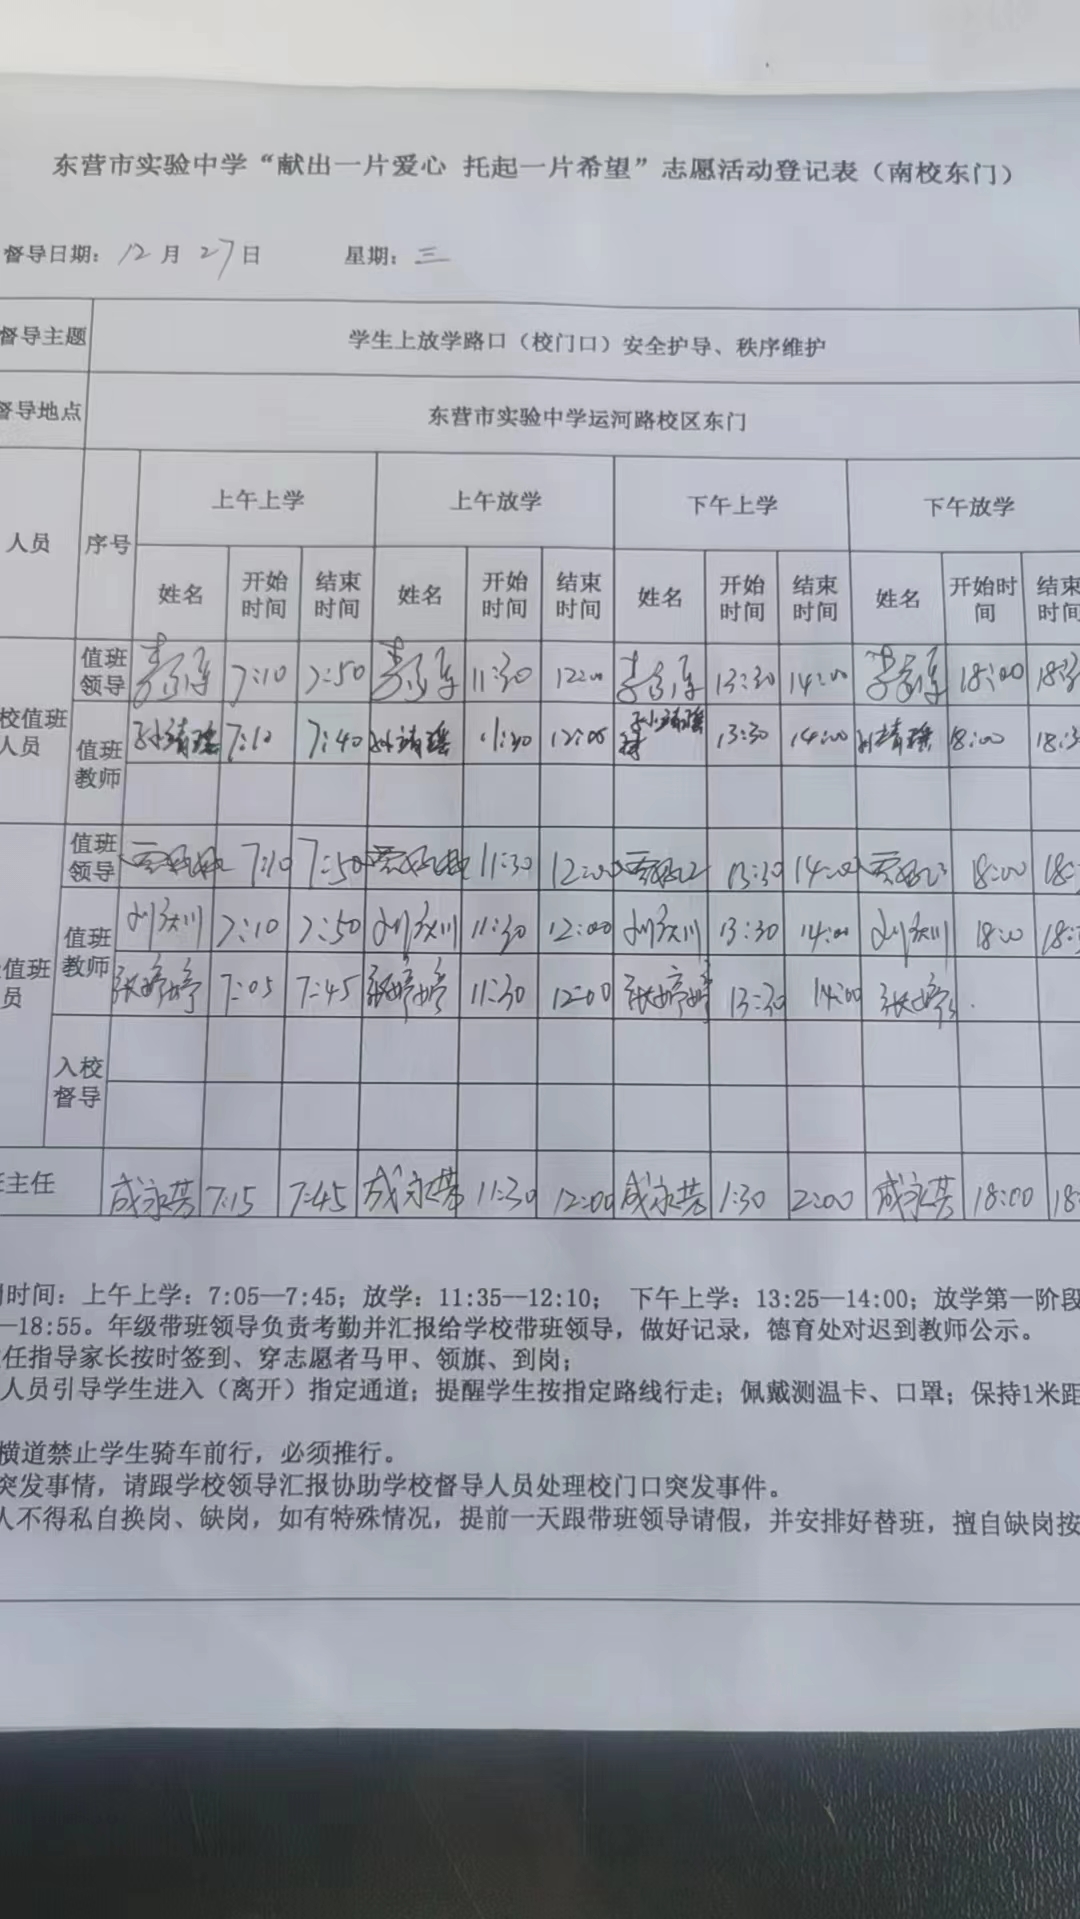 东营市实验中学“献出一片爱心 托起一片希望”志愿活动登记表（南校东门）
督导日期：12月27日 星期：三
督导主题 学生上放学路口（校门口）安全护导、秩序维护
督导地点 东营市实验中学运河路校区东门
人员 序号 上午上学 上午放学 下午上学 下午放学
姓名 开始时间 结束时间 姓名 开始时间 结束时间 姓名 开始时间 结束时间 姓名 开始时间 结束时间
校值班人员 值班领导 7:10 7:50 11:30 12:00 13:30 14:00 18:00
值班教师 孙靖瑶 7:10 7:40 孙靖瑶 11:30 12:00 孙靖瑶 13:30 14:00 孙靖瑶 18:00 18:3
值班领导 7:10 7:50 11:30 12:00 13:30 14:00 18:00 18:
值班人员 值班教师 刘庆川 7:10 7:50 刘庆川 11:30 12:00 刘庆川 13:30 14:00 刘庆川 18:00 18:
张婷婷 7:05 7:45 张婷婷 11:30 12:00 张婷婷 13:30 14:00 张婷婷
入校督导
主任 成永芳 7:15 7:45 成永芳 11:30 12:00 成永芳 1:30 2:00 成永芳 18:00 18:
时间：上午上学：7:05—7:45；放学：11:35—12:10； 下午上学：13:25—14:00；放学第一阶段
—18:55。年级带班领导负责考勤并汇报给学校带班领导，做好记录，德育处对迟到教师公示。
任指导家长按时签到、穿志愿者马甲、领旗、到岗；
人员引导学生进入（离开）指定通道；提醒学生按指定路线行走；佩戴测温卡、口罩；保持1米距
横道禁止学生骑车前行，必须推行。
突发事情，请跟学校领导汇报协助学校督导人员处理校门口突发事件。
人不得私自换岗、缺岗，如有特殊情况，提前一天跟带班领导请假，并安排好替班，擅自缺岗按